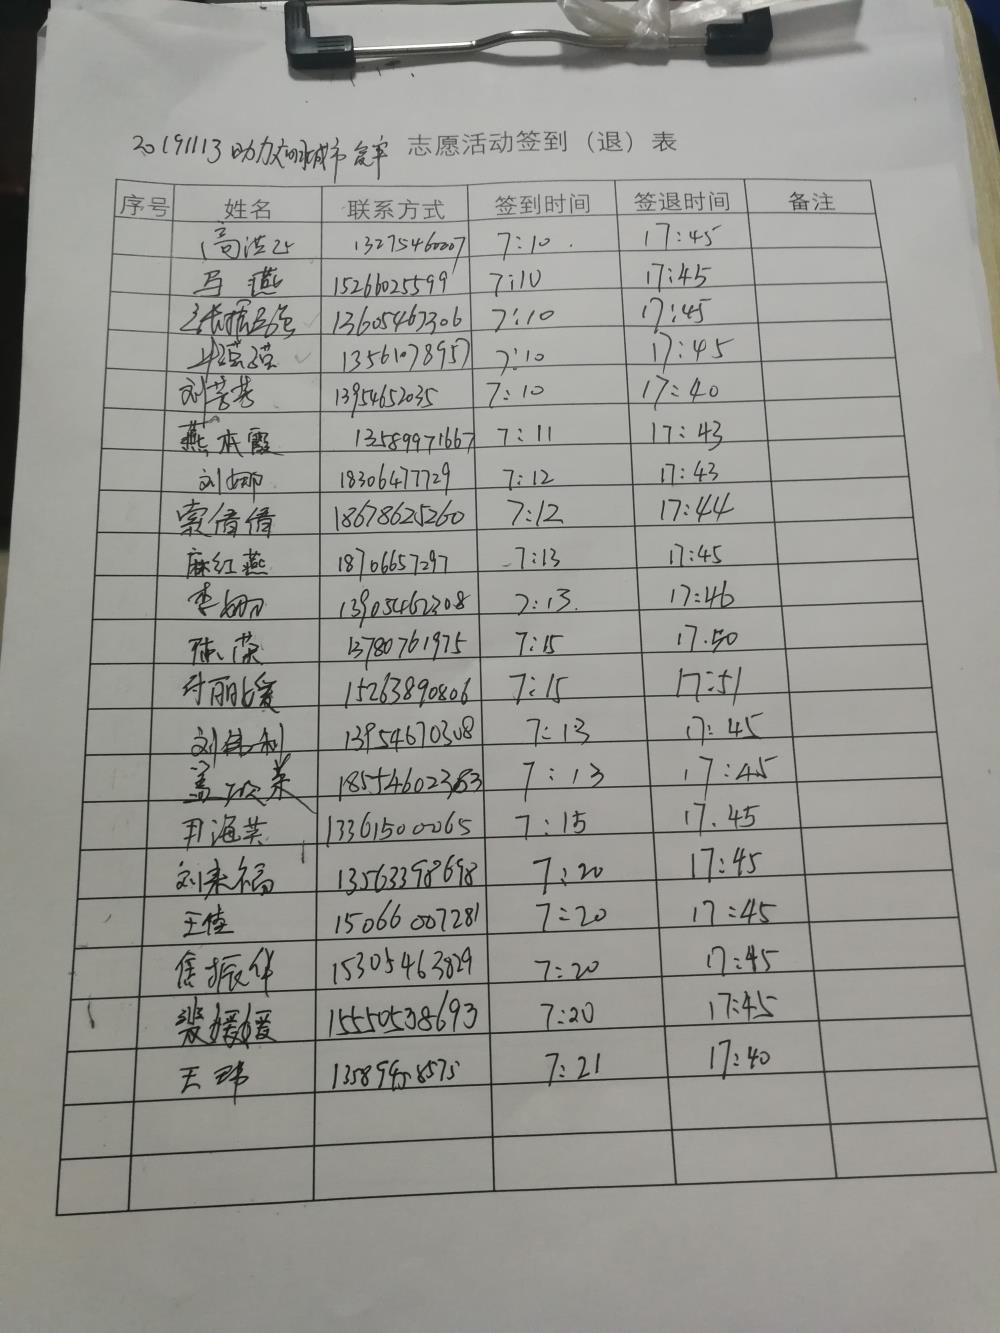 20191113 助力文明城市创建 志愿活动签到（退）表
序号 姓名 联系方式 签到时间 签退时间 备注
高洪 13275460207 7:10 17:45
马燕 15266025599 7:10 17:45
张振 13605467306 7:10 17:45
13561078957 7:10 17:45
刘芳芳 13954652035 7:10 17:40
燕本霞 13589971667 7:11 17:43
刘娜 18306477729 7:12 17:43
索倩倩 18678625260 7:12 17:44
麻红燕 18706657297 7:13 17:45
李娜 13905462308 7:13 17:46
陈荣 13780761975 7:15 17:50
付丽媛 15263890806 7:15 17:51
刘 利 13954670308 7:13 17:45
盖 荣 7:13 17:45
尹海英 13361500065 7:15 17:45
刘来福 13563398698 7:20 17:45
王佳 15066007281 7:20 17:45
焦振华 15305463829 7:20 17:45
裴媛媛 15550538693 7:20 17:45
王玮 7:21 17:40